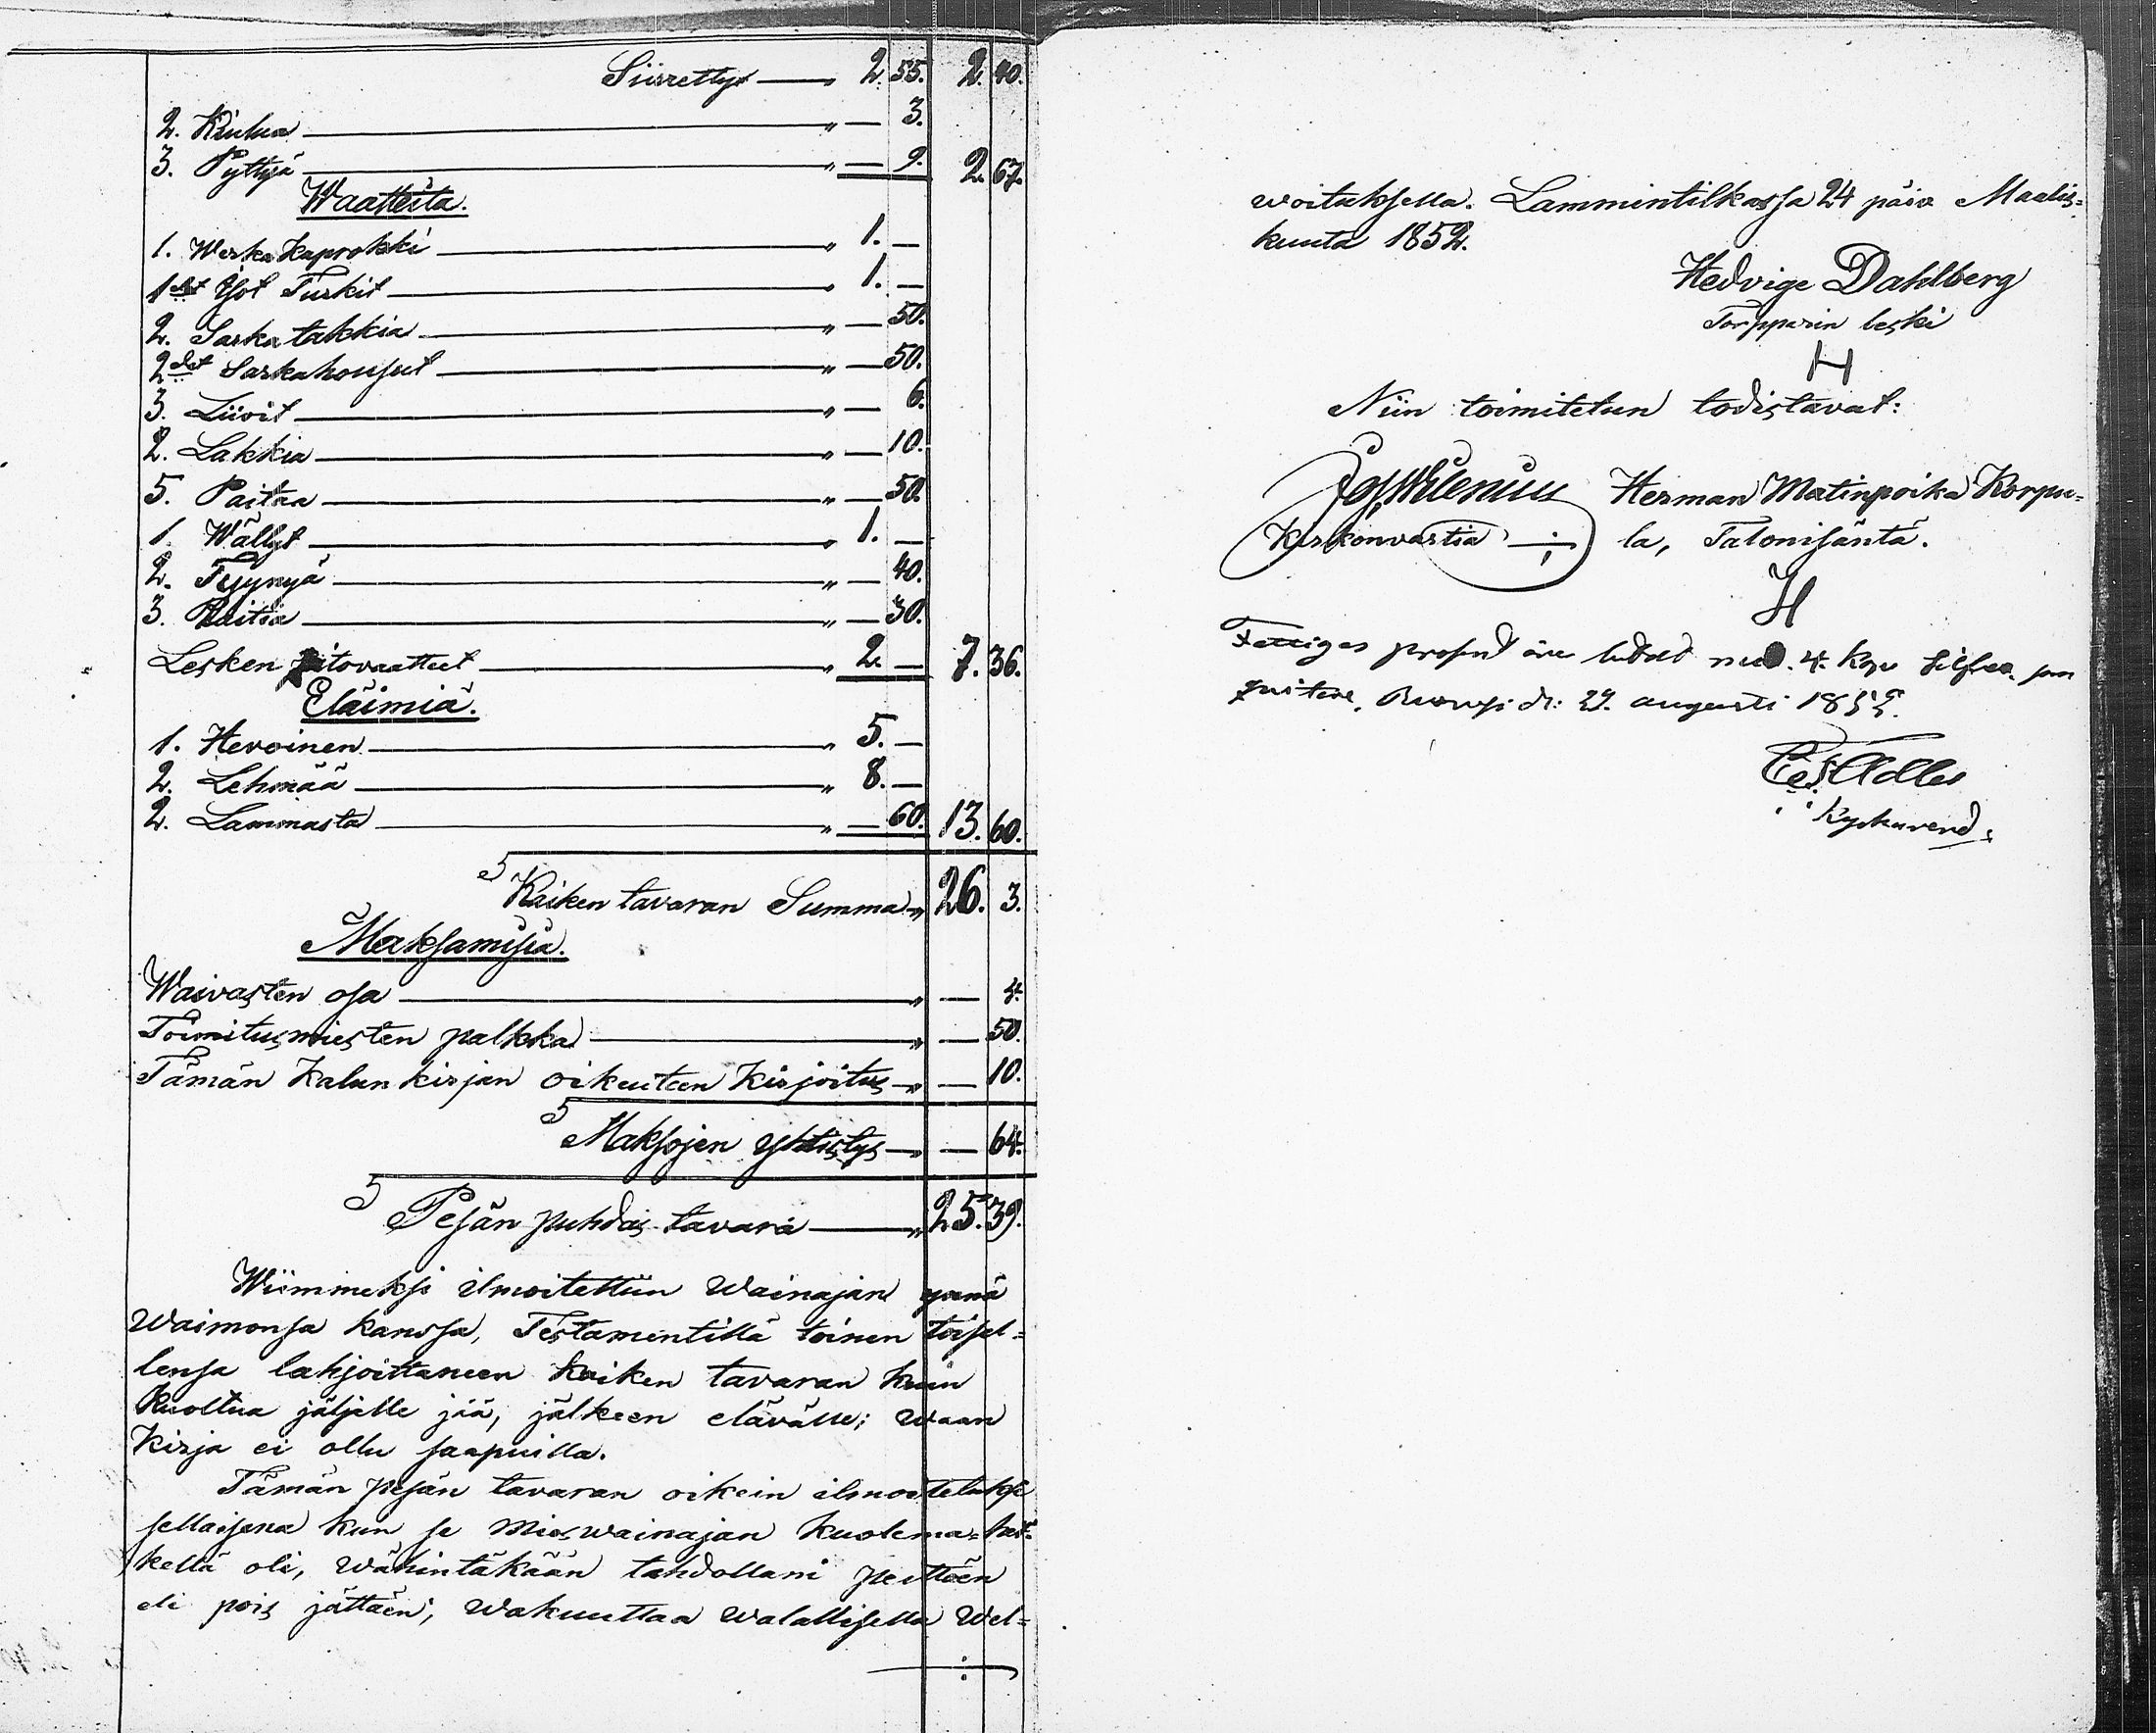 Siirretty — 2. 55. 2. 40.
2. Kiulua — „ — 3.
3. Pyttyä — „ — 9. 2. 67.
Waatteita.
1. Werka Kaprokki — „ 1. —
1det Yöt Turkit — „ 1. —
2. Sarkatakkia — „ — 50.
2det Sarkahousut — „ — 50.
3. Liivit — „ — 6.
2. Lakkia — „ — 10.
5. Paitaa — „ — 50.
1. Wällyt — „ 1. —
2. Tyynyä — „ — 40.
3. Raitia — „ — 30.
Lesken pitovaatteet — „ 2. — 7. 36.
Eläimiä.
1. Hevoinen — „ 5. —
2. Lehmää — „ 8. —
2. Lammasta — „ — 60. 13. 60.
Kaiken tavaran Summa „ 26. 3.
Maksamisia.
Waivasten osa — „ — 4.
Toimitusmiesten palkka — „ — 50.
Tämän Kalun kirjan oikeuteen Kirjoitus „ — 10.
Maksojen yhdistys — — 64.
Pesän puhdas tavara — „ 25. 39.
Wiimmeksi ilmoitettiin Wainajan ynnä
Waimonsa kanssa, Testamentillä toinen toisel=
lensa lahjoittaneen kaiken tavaran kuin
Kuoltua jäljelle jää, jälkeen elävälle; waan
Kirja ei ollu saapuilla.
Tämän pesän tavaran oikein ilmoitetuksi
sellaisena kun se Mieswainajan kuolema=het=
kellä oli, wähintäkään tahdollani peittäen
eli pois jättäen, wakuuttaa walallisella wel=
woituksella. Lammintilkassa 24 päiv Maalis=
kuuta 1852.
Hedvige Dahlberg
Torpparin leski
H
Niin toimitetun todistavat:
Herman Matinpoika Korpu=
Kirkonvartia la, Talonisäntä.
H
Fattiges procent äro med 4. Kop silfver som
qvitteras, d: 29. augusti 1855.
Adler